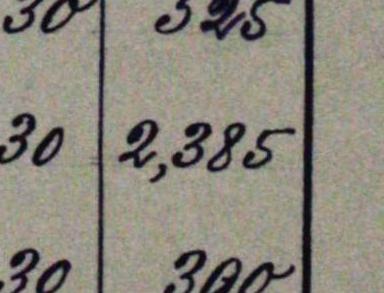 30 325
30 2,385
30 300